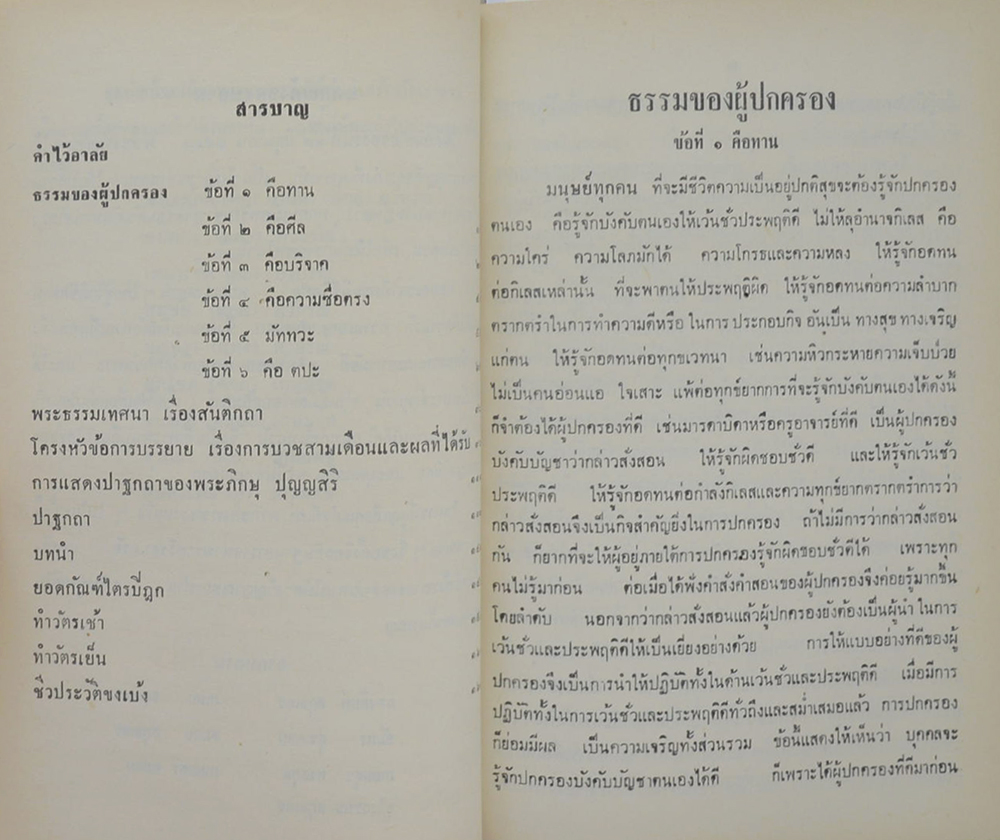 สารบาญ
คำไว้อาลัย
ธรรมของผู้ปกครอง ข้อที่ ๑ คือทาน
ข้อที่ ๒ คือศีล
ข้อที่ ๓ คือบริจาค
ข้อที่ ๔ คือความซื่อตรง
ข้อที่ ๕ มัททวะ
ข้อที่ ๖ คือ ตปะ
พระธรรมเทศนา เรื่องสันติกถา
โครงหัวข้อการบรรยาย เรื่องการบวชสามเดือนและผลที่ได้รับ
การแสดงปาฐกถาของพระภิกษุ ปุญญสิริ
ปาฐกถา
บทนำ
ยอดกัณฑ์ไตรปิฎก
ทำวัตรเช้า
ทำวัตรเย็น
ชีวประวัติขงเบ้ง
ธรรมของผู้ปกครอง
ข้อที่ ๑ คือทาน
มนุษย์ทุกคน ที่จะมีชีวิตความเป็นอยู่ปกติสุขจะต้องรู้จักปกครอง
ตนเอง คือรู้จักบังคับตนเองให้เว้นชั่วประพฤติดี ไม่ให้ลุอำนาจกิเลส คือ
ความใคร่ ความโลภมักได้ ความโกรธและความหลง ให้รู้จักอดทน
ต่อกิเลสเหล่านั้น ที่จะพาตนให้ประพฤติผิด ให้รู้จักอดทนต่อความลำบาก
ตรากตรำในการทำความดีหรือ ในการ ประกอบกิจ อันเป็น ทางสุข ทางเจริญ
แก่ตน ให้รู้จักอดทนต่อทุกขเวทนา เช่นความหิวกระหายความเจ็บป่วย
ไม่เป็นคนอ่อนแอ ใจเสาะ แพ้ต่อทุกข์ยากการที่จะรู้จักบังคับตนเองได้ดังนี้
ก็จำต้องได้ผู้ปกครองที่ดี เช่นมารดาบิดาหรือครูอาจารย์ที่ดี เป็นผู้ปกครอง
บังคับบัญชาว่ากล่าวสั่งสอน ให้รู้จักผิดชอบชั่วดี และให้รู้จักเว้นชั่ว
ประพฤติดี ให้รู้จักอดทนต่อกำลังกิเลสและความทุกข์ยากตรากตรำการว่า
กล่าวสั่งสอนจึงเป็นกิจสำคัญยิ่งในการปกครอง ถ้าไม่มีการว่ากล่าวสั่งสอน
กัน ก็ยากที่จะให้ผู้อยู่ภายใต้การปกครองรู้จักผิดชอบชั่วดีได้ เพราะทุก
คนไม่รู้มาก่อน ต่อเมื่อได้ฟังคำสั่งคำสอนของผู้ปกครองจึงค่อยรู้มากขึ้น
โดยลำดับ นอกจากว่ากล่าวสั่งสอนแล้วผู้ปกครองยังต้องเป็นผู้นำ ในการ
เว้นชั่วและประพฤติดีให้เป็นเยี่ยงอย่างด้วย การให้แบบอย่างที่ดีของผู้
ปกครองจึงเป็นการนำให้ปฏิบัติทั้งในด้านเว้นชั่วและประพฤติดี เมื่อมีการ
ปฏิบัติทั้งในการเว้นชั่วและประพฤติดีทั่วถึงและสม่ำเสมอแล้ว การปกครอง
ก็ย่อมมีผล เป็นความเจริญทั้งส่วนรวม ข้อนี้แสดงให้เห็นว่า บุคคลจะ
รู้จักปกครองบังคับบัญชาตนเองได้ดี ก็เพราะได้ผู้ปกครองที่ดีมาก่อน